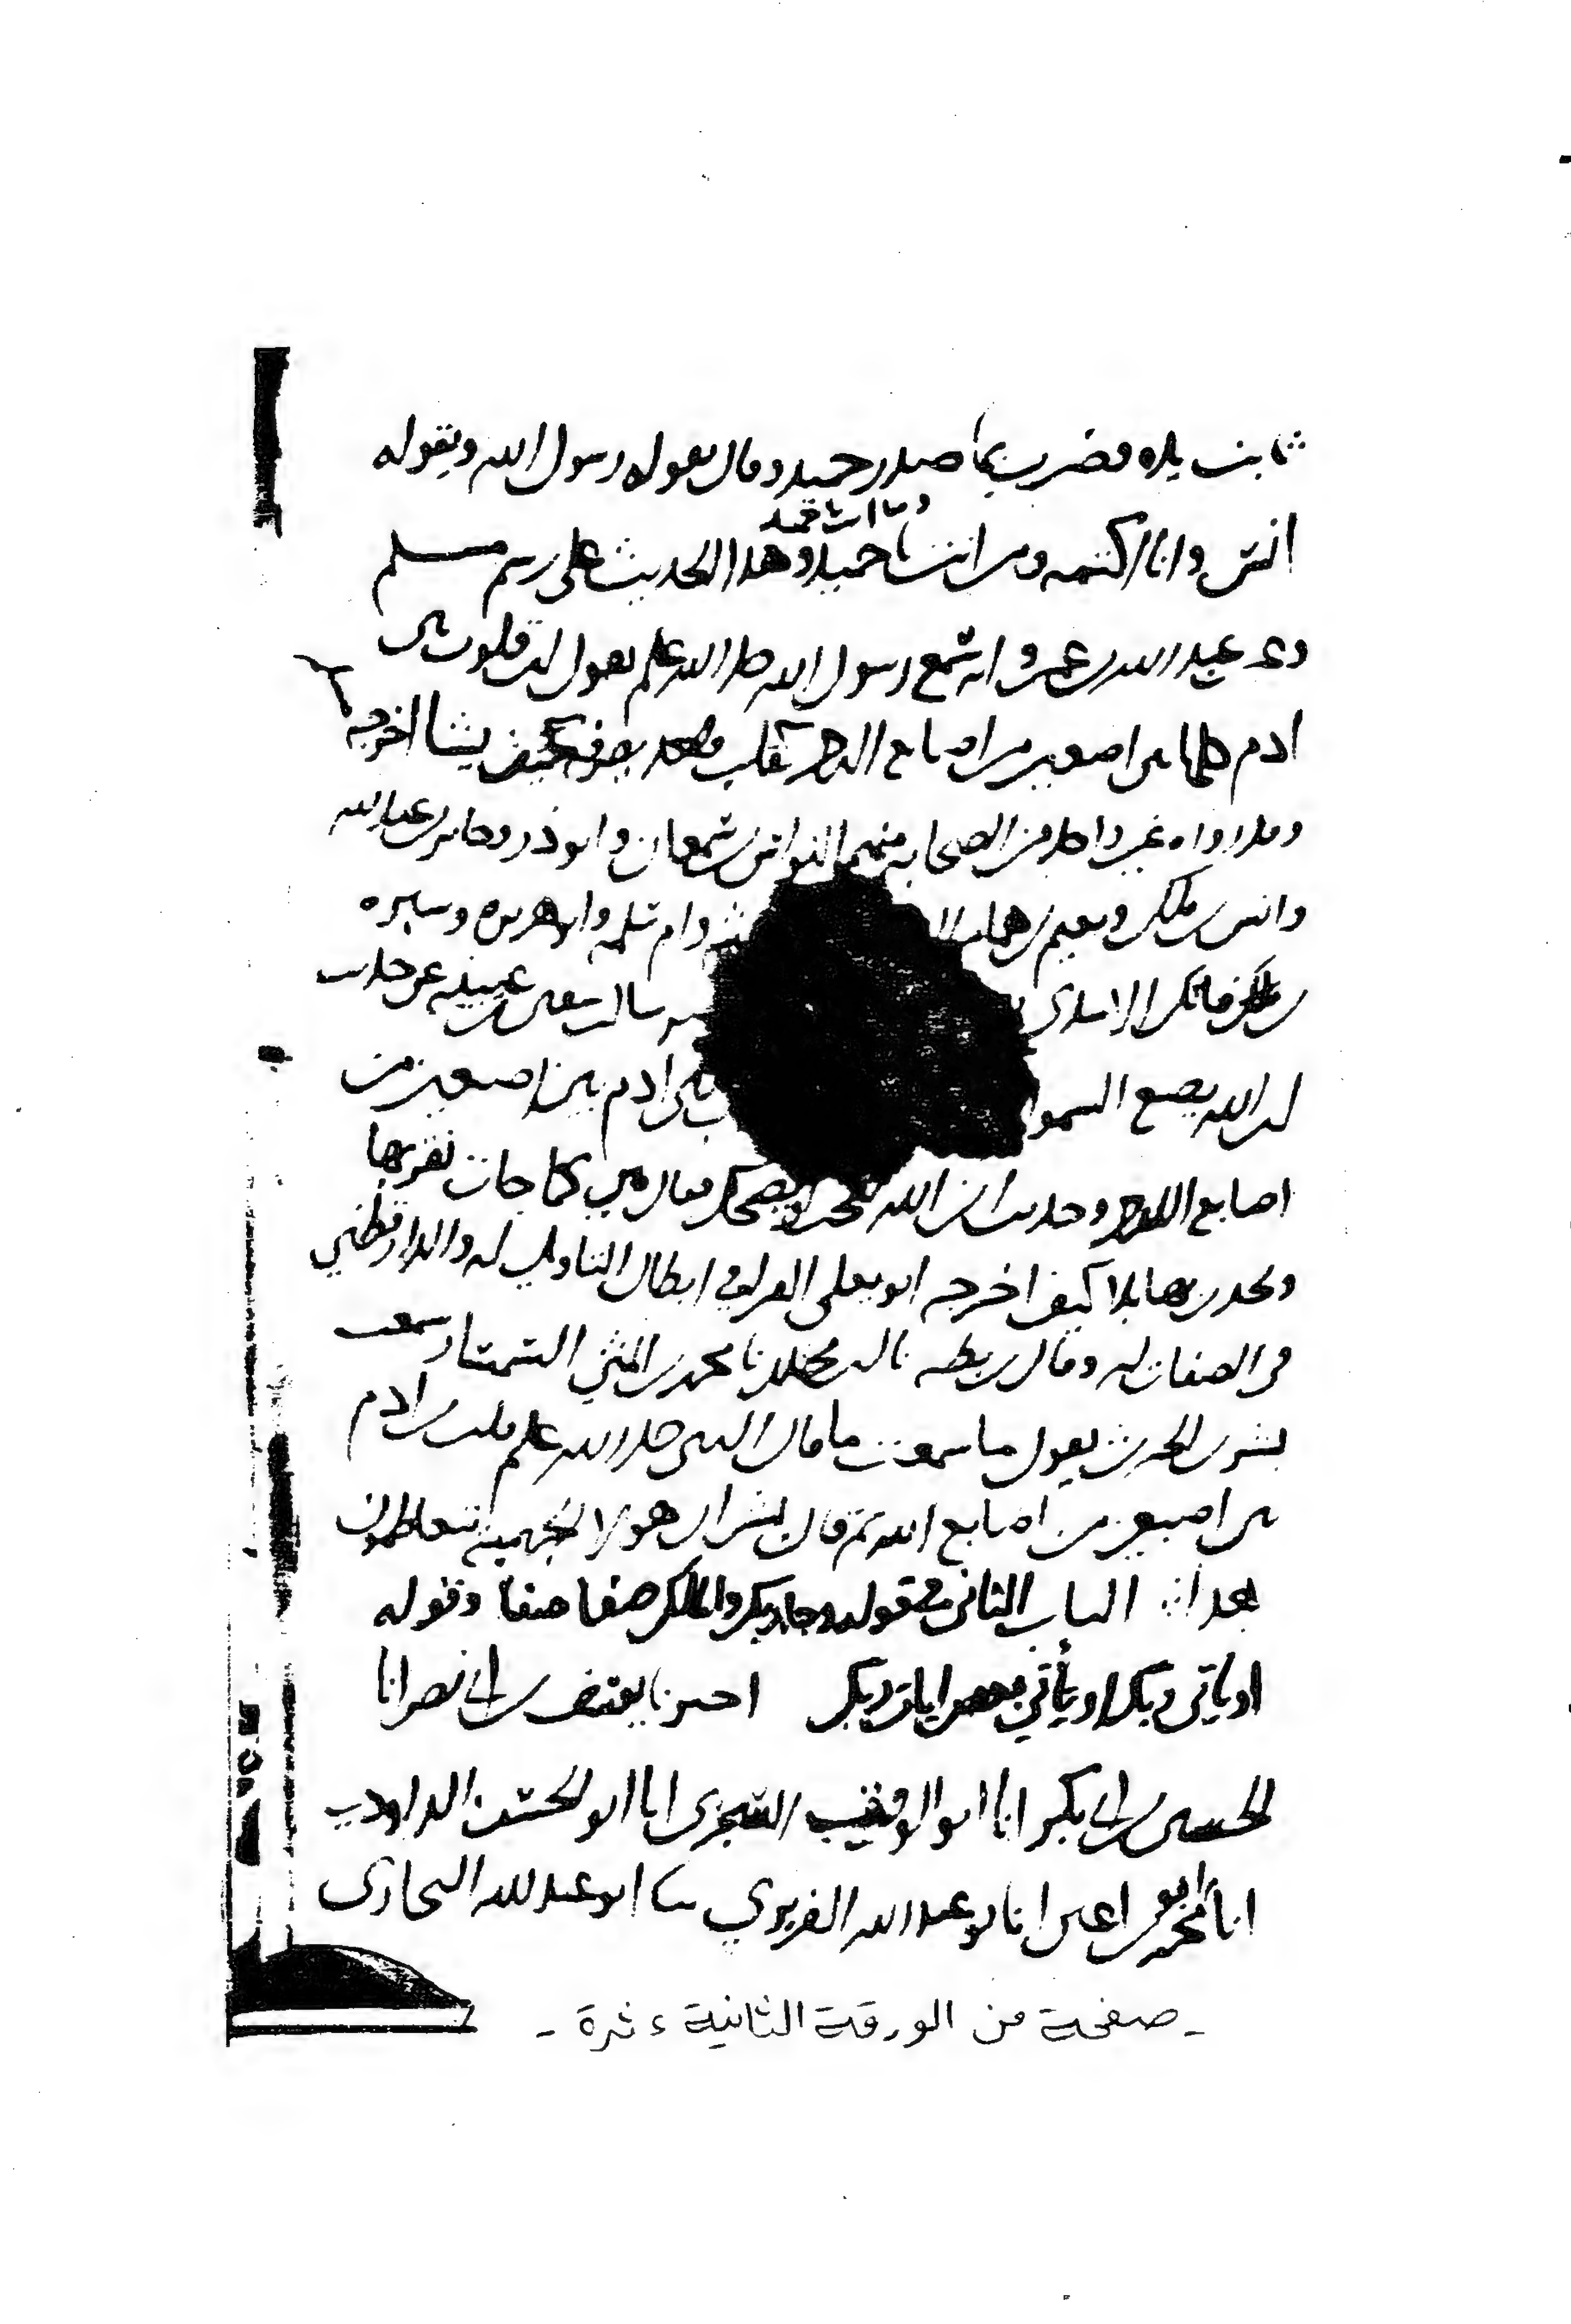 ثابت يده فضرب بها صدر حميد وقال يقوله رسول الله ويقوله
انس وانا اكتمه ومن انت يا حميد وهذا الحديث على رسم مسلم
وما انت محمد
وعن عبد الله بن عمرو انه سمع رسول الله صلى الله عليه وسلم يقول ان قلوب بني
ادم كلها بين اصبعين من اصابع الرحمن كقلب واحد يصرفه كيف يشا اخرجه م
وقد رواه غير واحد من الصحابة منهم النواس بن سمعان وابو ذر وجابر بن عبد الله
وانس بن ملك ونعيم بن همار وام سلمه وابو هريره وسبره
بن فاتك الاسدي سالت سفين بن عيينه عن حديث
ان الله يضع السموا بني ادم بين اصبعين من
اصابع الرحمن وحديث ان الله يعجب ويضحك فقال هي كما جات نقر بها
ونحدث بها بلا كيف اخرجه ابو يعلى الفرا في ابطال التاويل له والدارقطني
في الصفات له وقال بن بطه نا بن مخلد نا محمد بن المثنى السمسار سمعت
بشر بن الحرث يقول ما سمعت ما قال النبي صلى الله عليه وسلم قلب بن ادم
بين اصبعين من اصابع الله ثم قال بشر ان هولا الجهمية يتعاظمون
هذا الباب الثاني في قوله وجا ربك والملك صفا صفا وقوله
او ياتي ربك او يأتي بعض ايات ربك اخبرنا يعيش بن ابي نصر انا
الحسين بن ابي بكر انا ابو الوقت السجزي انا ابو الحسن الداودي
انا ابو محمد بن اعين انا ابو عبد الله الفربري نا ابو عبد الله البخاري
- صفحة من الورقة الثانية عشرة -